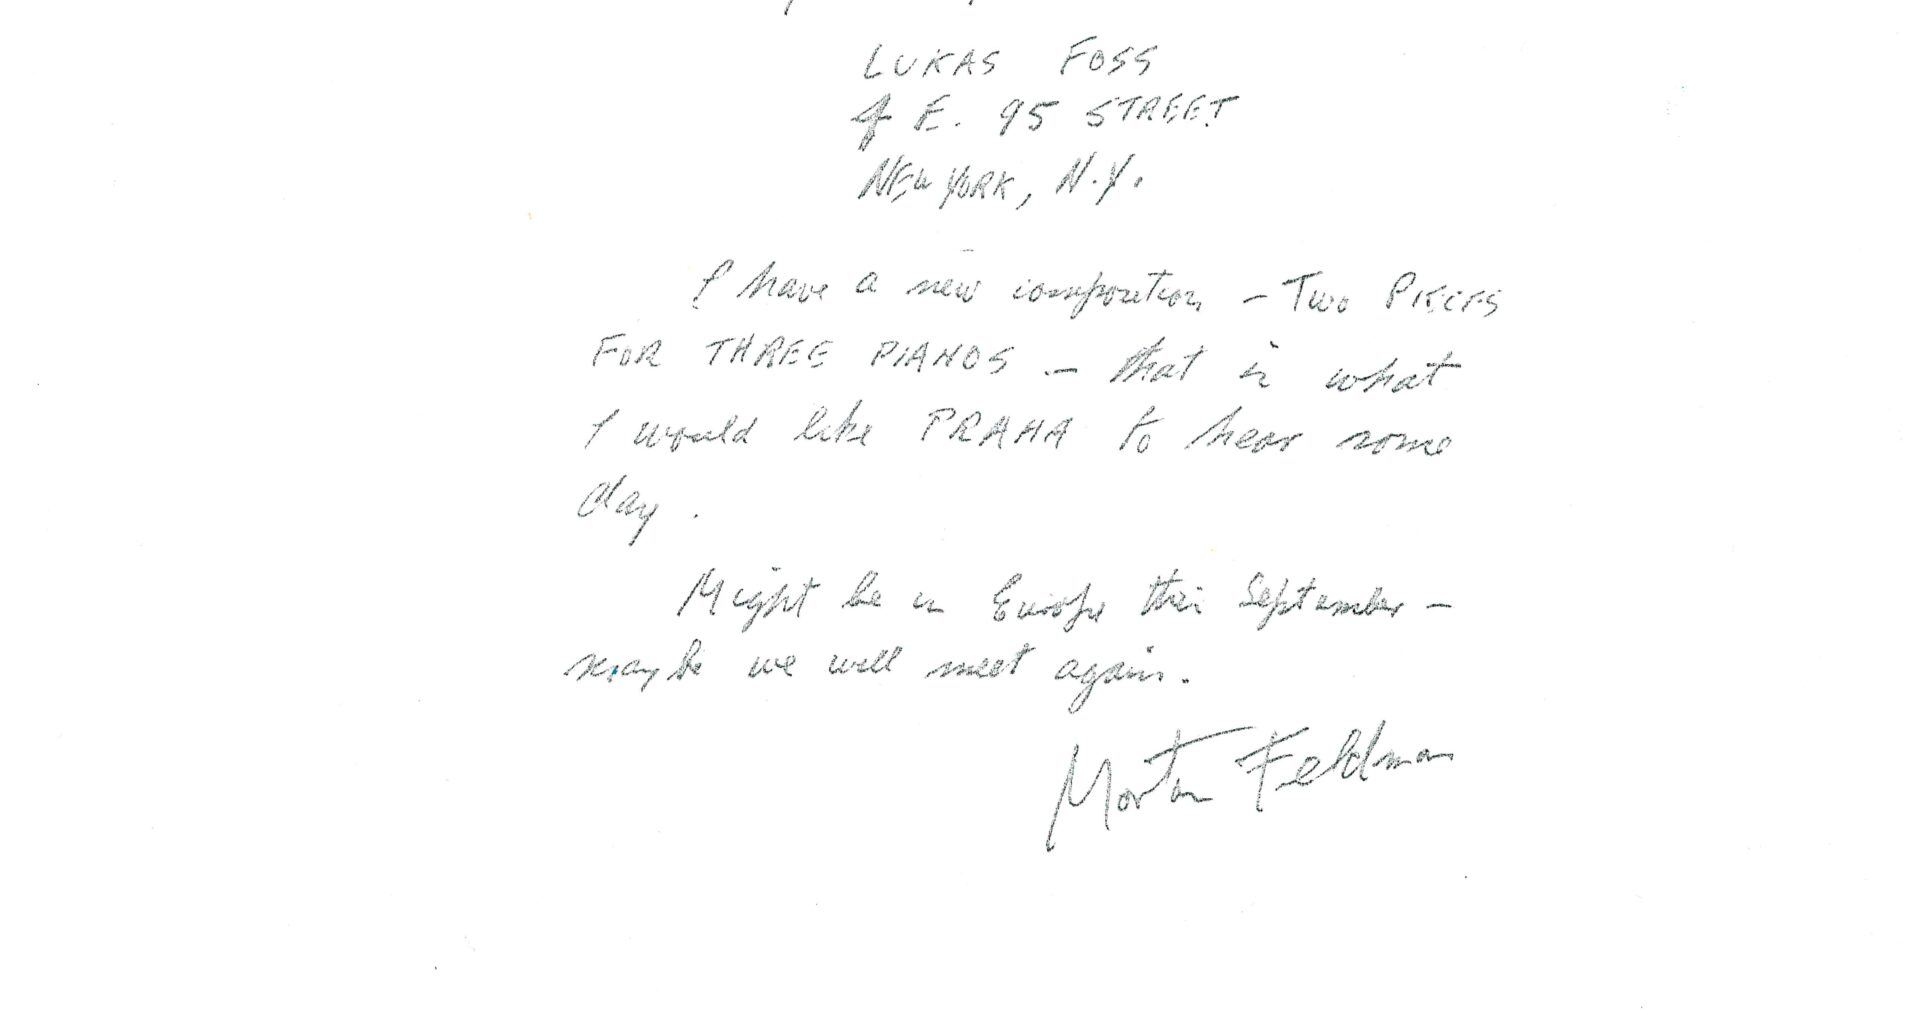 LUKAS FOSS
E. 95 STREET
NEW YORK, N.Y.
I have a new composition – TWO PIECES
FOR THREE PIANOS – that is what
I would like PRAHA to hear some
day.
Might be in Europe this September –
maybe we will meet again.
Morton Feldman